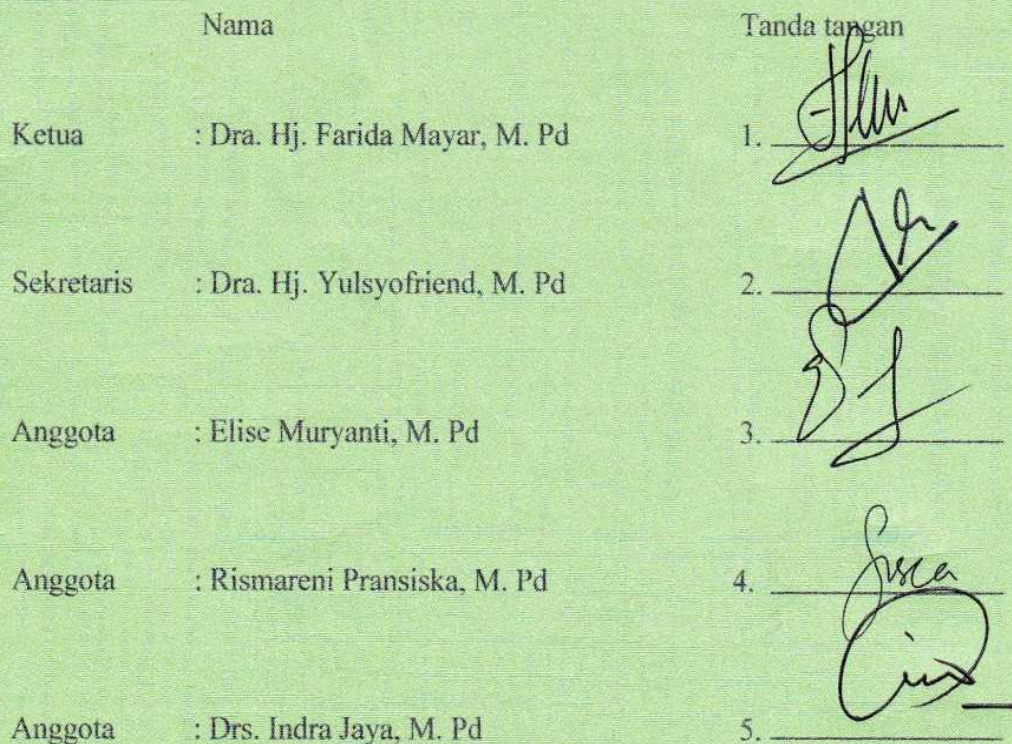 Nama Tanda tangan
Ketua : Dra. Hj. Farida Mayar, M. Pd 1.
Sekretaris : Dra. Hj. Yulsyofriend, M. Pd 2.
Anggota : Elise Muryanti, M. Pd 3.
Anggota : Rismareni Pransiska, M. Pd 4.
Anggota : Drs. Indra Jaya, M. Pd 5.